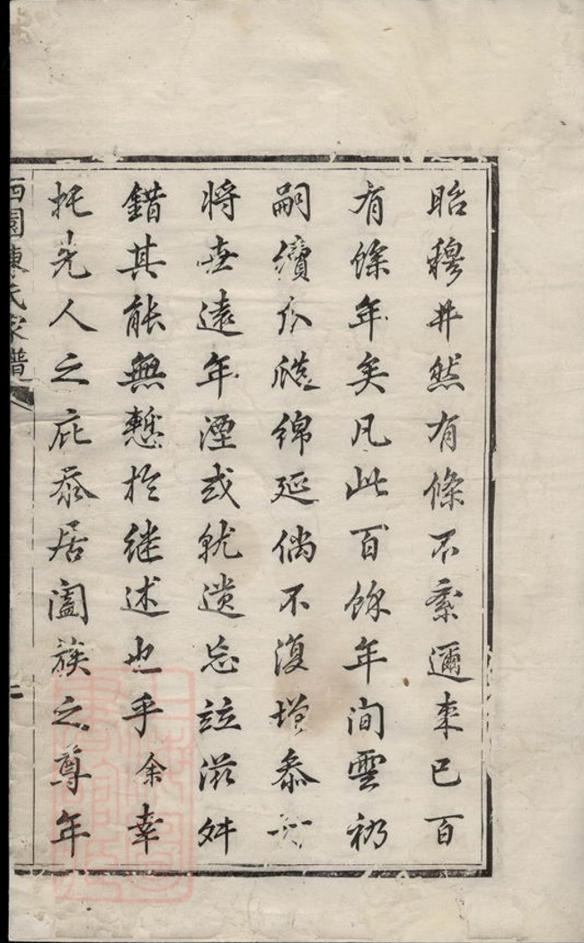 昭穆井然有條不紊邇来已百
有餘年矣凡此百餘年間雲礽
嗣續瓜瓞綿延倘不復增秦
將世遠年湮或就遺忘竝滋舛
錯其能無慙於继述也乎余幸
托先人之庇忝居闔族之尊年
西園陳氏家譜
二